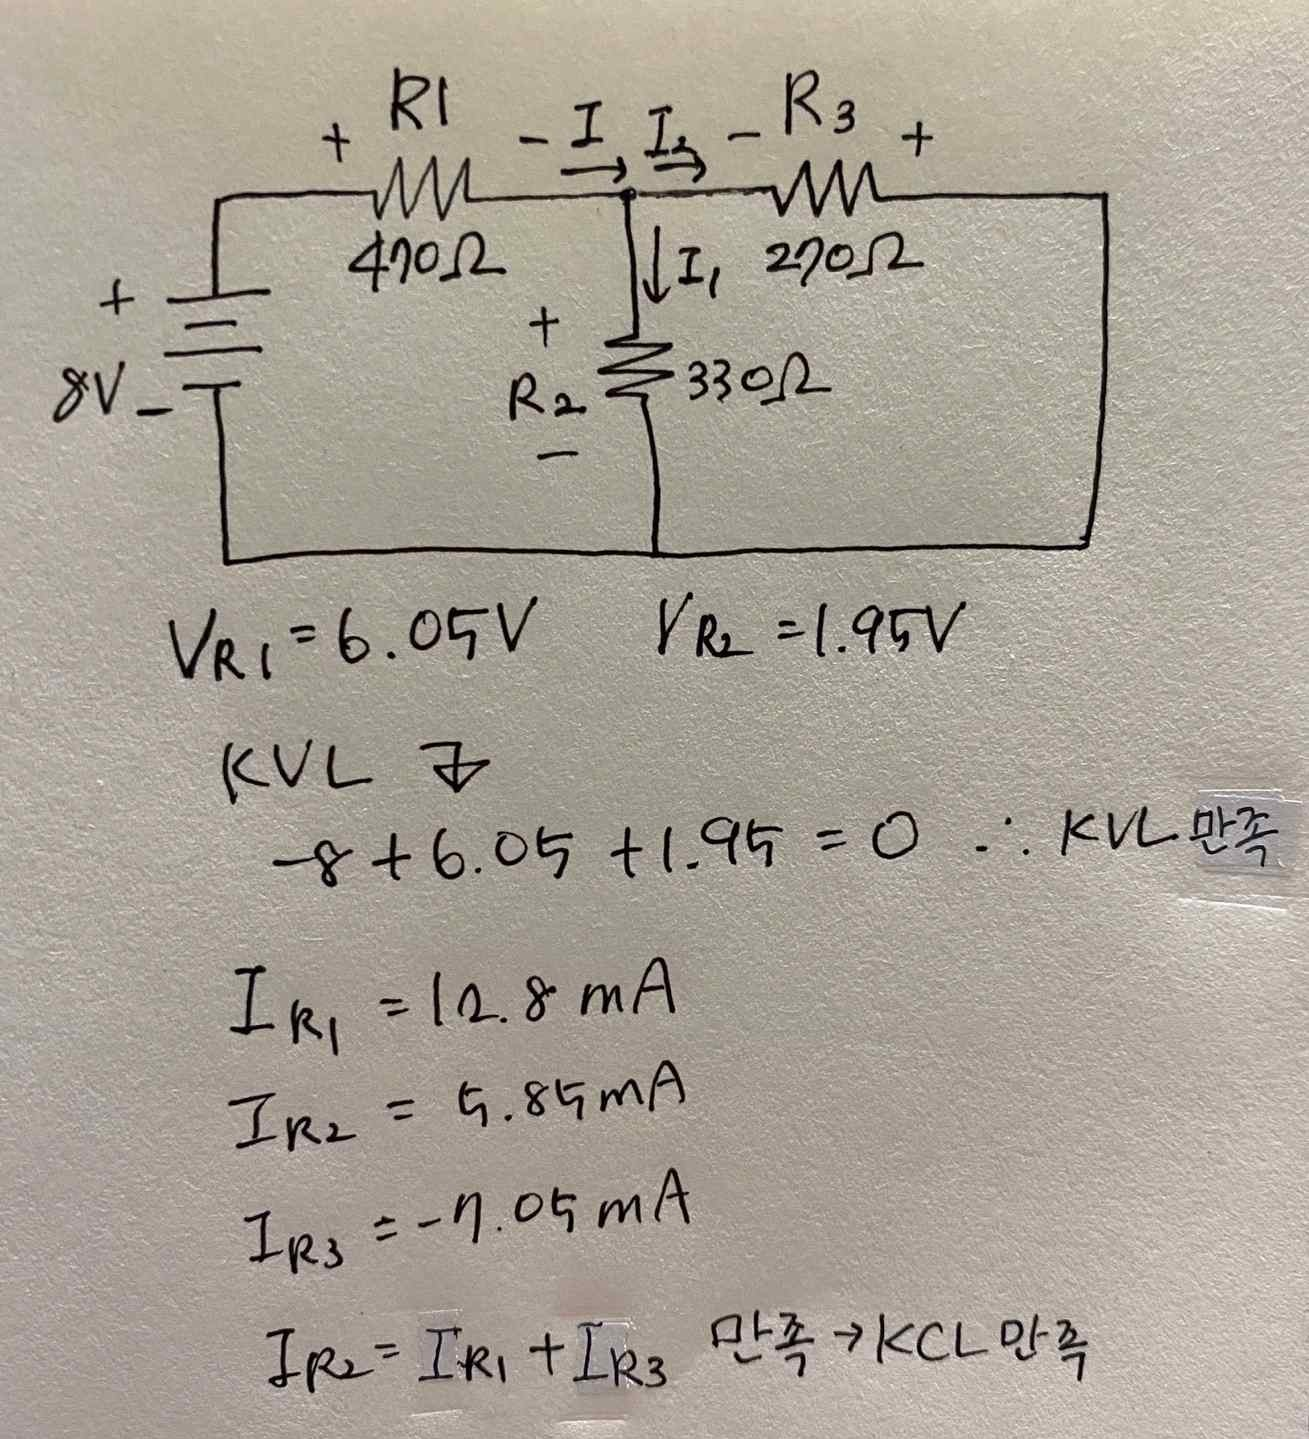 R1
+ - I I₂ - R3 +
470Ω
I₁ 270Ω
+
8V -
+
R2 330Ω
-
VR1 = 6.05V VR2 = 1.95V
KVL
-8 + 6.05 + 1.95 = 0 ∴ KVL 만족
IR1 = 12.8 mA
IR2 = 5.85mA
IR3 = -7.05 mA
IR2 = IR1 + IR3 만족 → KCL 만족